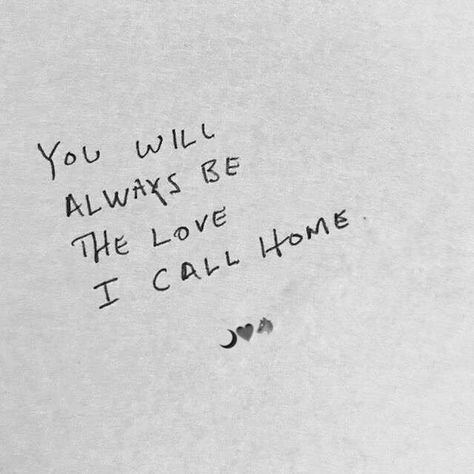 YOU WILL
ALWAYS BE
THE LOVE
I CALL HOME.